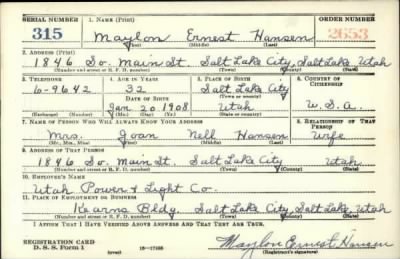 SERIAL NUMBER 1. NAME (Print) ORDER NUMBER
315 Maylon Ernest Hansen 2653
(First) (Middle) (Last)
2. ADDRESS (Print)
1846 So. Main St. Salt Lake City, Salt Lake, Utah
(Number and street or R. F. D. number) (Town) (County) (State)
3. TELEPHONE 4. AGE IN YEARS 5. PLACE OF BIRTH 6. COUNTRY OF CITIZENSHIP
6-9642 32 Salt Lake City U. S. A.
DATE OF BIRTH (Town or county)
Jan. 20 1908 Utah
(Exchange) (Number) (Mo.) (Day) (Yr.) (State or country)
7. NAME OF PERSON WHO WILL ALWAYS KNOW YOUR ADDRESS 8. RELATIONSHIP OF THAT PERSON
Mrs. Joan Nell Hansen Wife
(Mr., Mrs., Miss) (First) (Middle) (Last)
9. ADDRESS OF THAT PERSON
1846 So. Main St. Salt Lake City Utah
(Number and street or R. F. D. number) (Town) (County) (State)
10. EMPLOYER'S NAME
Utah Power & Light Co.
11. PLACE OF EMPLOYMENT OR BUSINESS
Kearns Bldg. Salt Lake City, Salt Lake, Utah
(Number and street or R. F. D. number) (Town) (County) (State)
I AFFIRM THAT I HAVE VERIFIED ABOVE ANSWERS AND THAT THEY ARE TRUE.
REGISTRATION CARD
D. S. S. Form 1 (over) Maylon Ernest Hansen
(Registrant's signature)